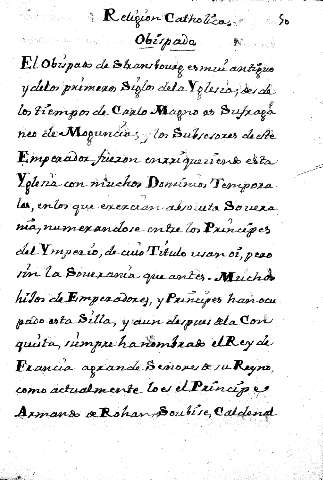 Religion Catholica. 50
Obispado
El Obispado de Strasbourg es mui antiguo
y de los primeros Siglos de la Yglesia; desde
los tiempos de Carlo Magno es Sufraga
neo de Moguncia, y los Subsesores de este
Emperador fueron enrriqueciendo esta
Yglesia con muchos Dominios Tempora
les, en los que exercian absoluta Sovera
nia, numerandose entre los Principes
del Ymperio, de cuio Titulo usan oi, pero
sin la Soverania que antes. Muchos
hijos de Emperadores, y Principes han ocu
pado esta Silla, y aun despues de la Con
quista, siempre ha nombrado el Rey de
Francia a grandes Señores de su Reyno,
como actualmente lo es el Principe
Armando de Rohan Soubise, Cardenal